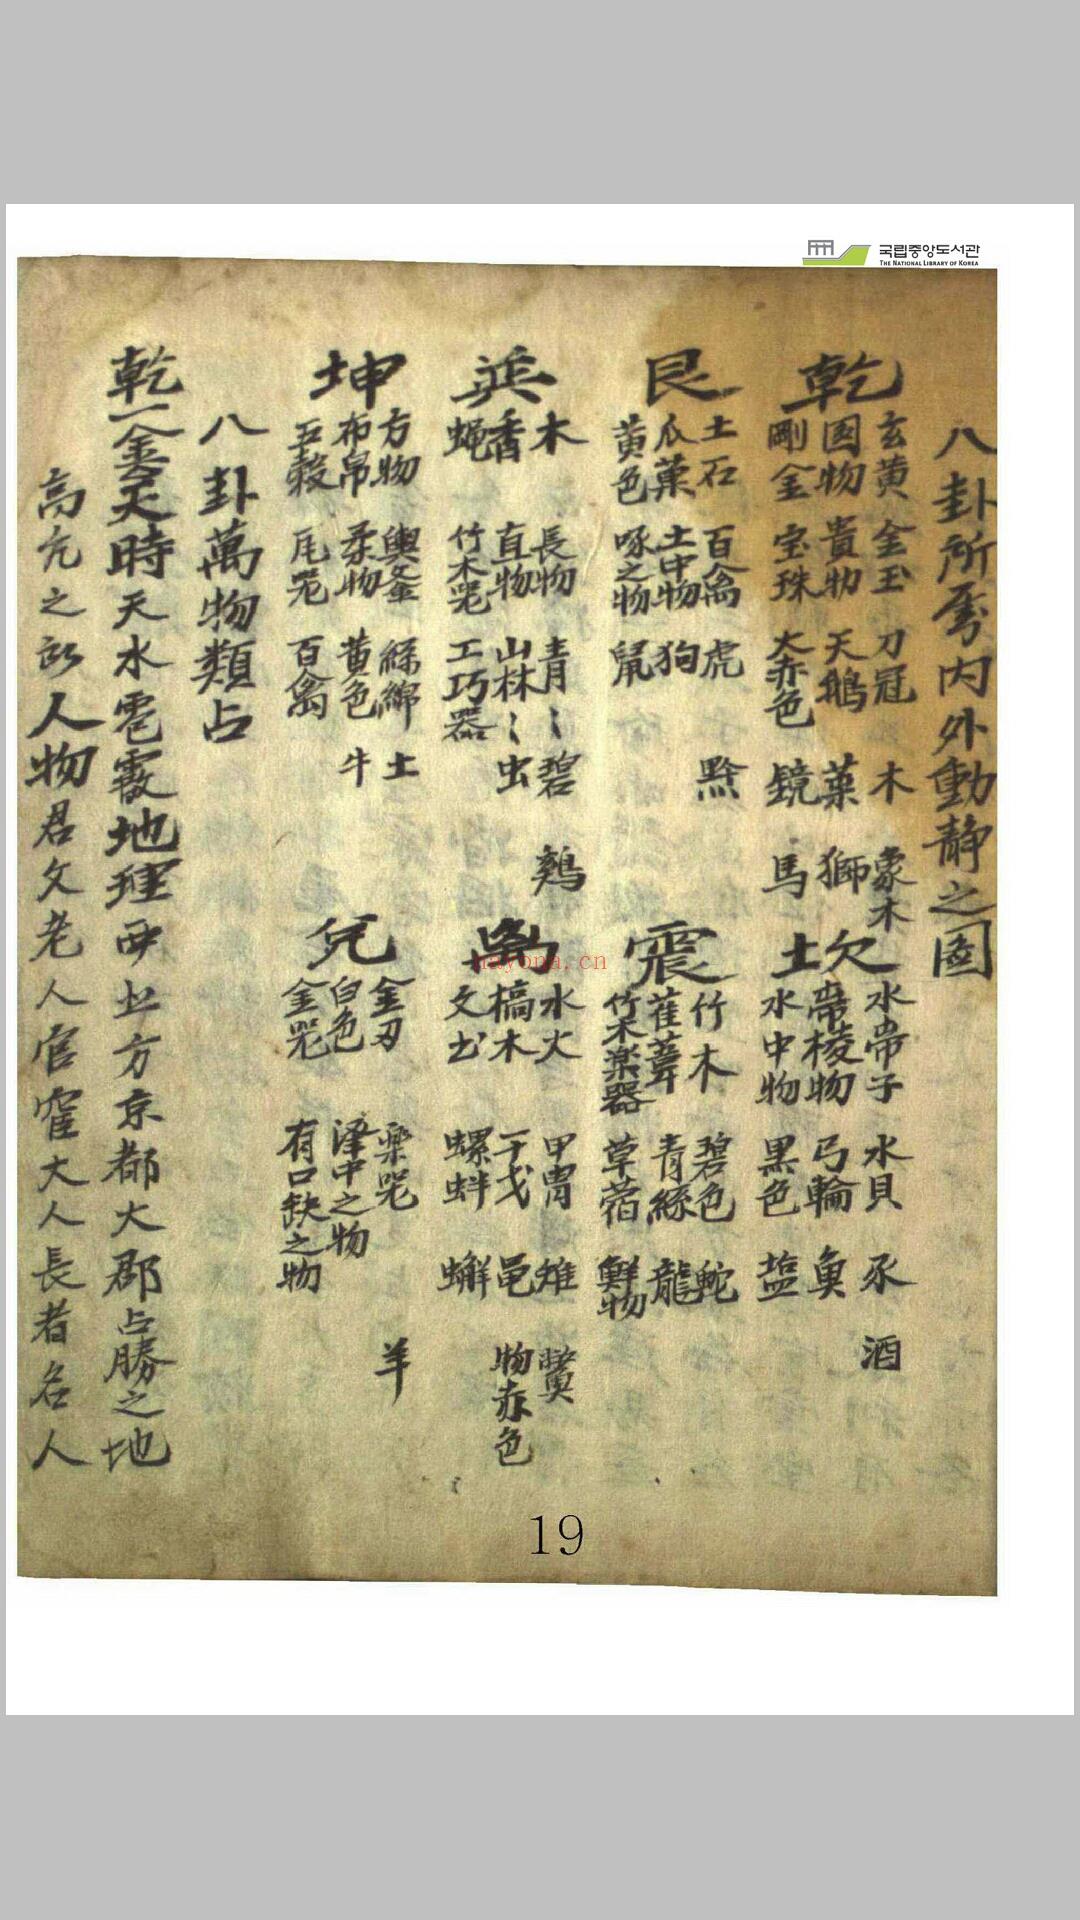 국립중앙도서관
THE NATIONAL LIBRARY OF KOREA
八卦所属内外動静之圖
乾
玄黄 金玉 刀冠 木 象木
圆物 貴物 天鵝 菓 獅
剛金 宝珠 大赤色 鏡 馬
艮
土石 百禽 虎 黔
瓜菓 土中物 狗
黄色 啄之物 鼠
巽
木 長物 青〻碧 鷄
香 直物 山林〻虫
蝇 竹木咒 工巧器
坤
方物 輿釜 絲綿 土
布帛 柔物 黄色 牛
五穀 瓦咒 百禽
坎
水帶子 水貝 豕 酒
帶棱物 弓輪 魚
水中物 黒色 塩
震
竹木 碧色 蛇
萑葦 青絲 龍
竹木楽器 草蓿 鮮物
离
水火 甲胄 雉
槁木 干戈 黾 物赤色
文书 螺蚌 蠏
兌
金刃 樂咒 羊
白色 泽中之物
金咒 有口缺之物
八卦萬物類占
乾一金天時天水雹霰地理西北方京都大郡占勝之地
高亢之所人物君父老人官宦大人長者名人
nayona.cn
19